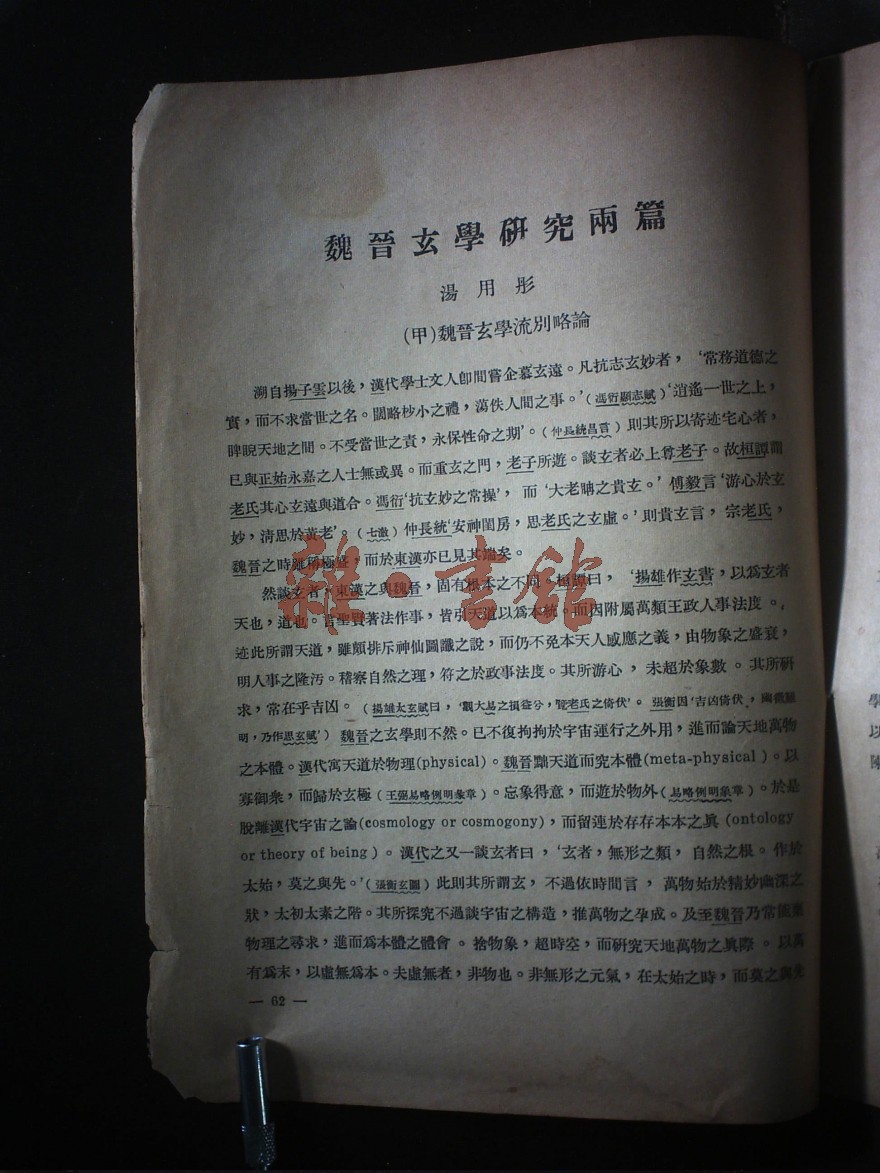 魏晉玄學研究兩篇
湯用彤
(甲)魏晉玄學流別略論
溯自揚子雲以後，漢代學士文人卽間嘗企慕玄遠。凡抗志玄妙者，‘常務道德之
實，而不求當世之名。闊略杪小之禮，蕩佚人間之事。’(馮衍顯志賦)‘逍遙一世之上，
睥睨天地之間。不受當世之責，永保性命之期’。(仲長統昌言)則其所以寄迹宅心者，
已與正始永嘉之人士無或異。而重玄之門，老子所遊。談玄者必上尊老子。故桓譚謂
老氏其心玄遠與道合。馮衍‘抗玄妙之常操’，而‘大老聃之貴玄。’傅毅言‘游心於玄
妙，淸思於黃老’。(七激)仲長統‘安神閨房，思老氏之玄虛。’則貴玄言，宗老氏，
魏晉之時雖稱極盛，而於東漢亦已見其端矣。
然談玄者，東漢之與魏晉，固有根本之不同。桓譚曰，‘揚雄作玄書，以爲玄者
天也，道也。言聖賢著法作事，皆引天道以爲本統。而因附屬萬類王政人事法度。’
迹此所謂天道，雖頗排斥神仙圖讖之說，而仍不免本天人感應之義，由物象之盛衰，
明人事之隆汚。稽察自然之理，符之於政事法度。其所游心，未超於象數。其所研
求，常在乎吉凶。(揚雄太玄賦曰，‘觀大易之損益兮，覽老氏之倚伏’。張衡因‘吉凶倚伏，幽微難
明，乃作思玄賦’)魏晉之玄學則不然。已不復拘拘於宇宙運行之外用，進而論天地萬物
之本體。漢代寓天道於物理(physical)。魏晉黜天道而究本體(meta-physical)。以
寡御衆，而歸於玄極(王弼易略例明彖章)。忘象得意，而遊於物外(易略例明象章)。於是
脫離漢代宇宙之論(cosmology or cosmogony)，而留連於存存本本之眞(ontology
or theory of being)。漢代之又一談玄者曰，‘玄者，無形之類，自然之根。作於
太始，莫之與先。’(張衡玄圖)此則其所謂玄，不過依時間言，萬物始於精妙幽深之
狀，太初太素之階。其所探究不過談宇宙之構造，推萬物之孕成。及至魏晉乃常能棄
物理之尋求，進而爲本體之體會。捨物象，超時空，而研究天地萬物之眞際。以萬
有爲末，以虛無爲本。夫虛無者，非物也。非無形之元氣，在太始之時，而莫之與先
— 62 —
雜·書館
學
以
陳